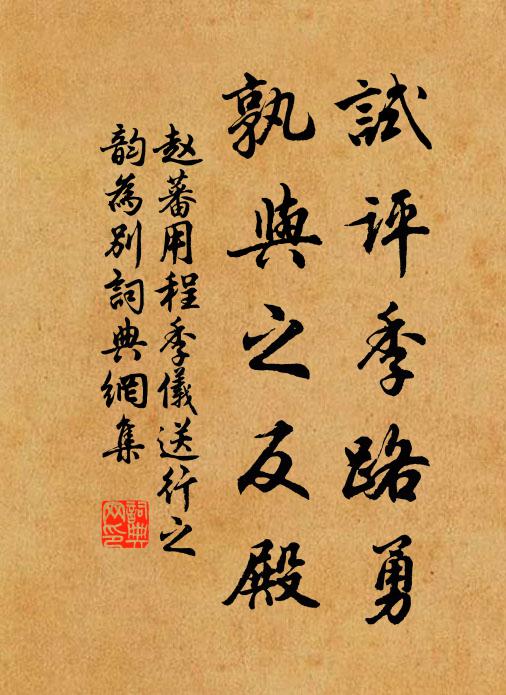 試評季路勇
孰與之反殿
赵蕃用程季儀送行之
韵為别詞典網集
詞典
网印